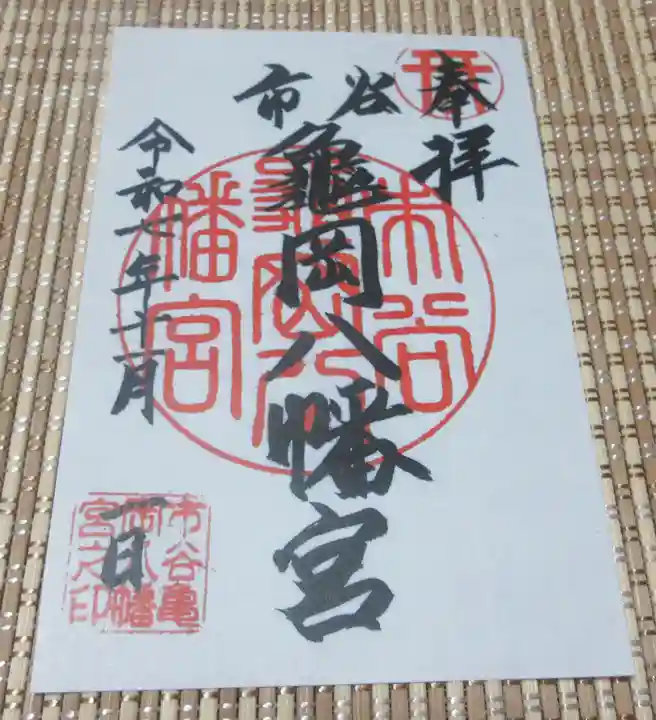 奉拝
市谷
龜岡八幡宮
令和七年十一月
一日
市谷
龜岡八
幡宮
市谷亀
岡八幡
宮之印